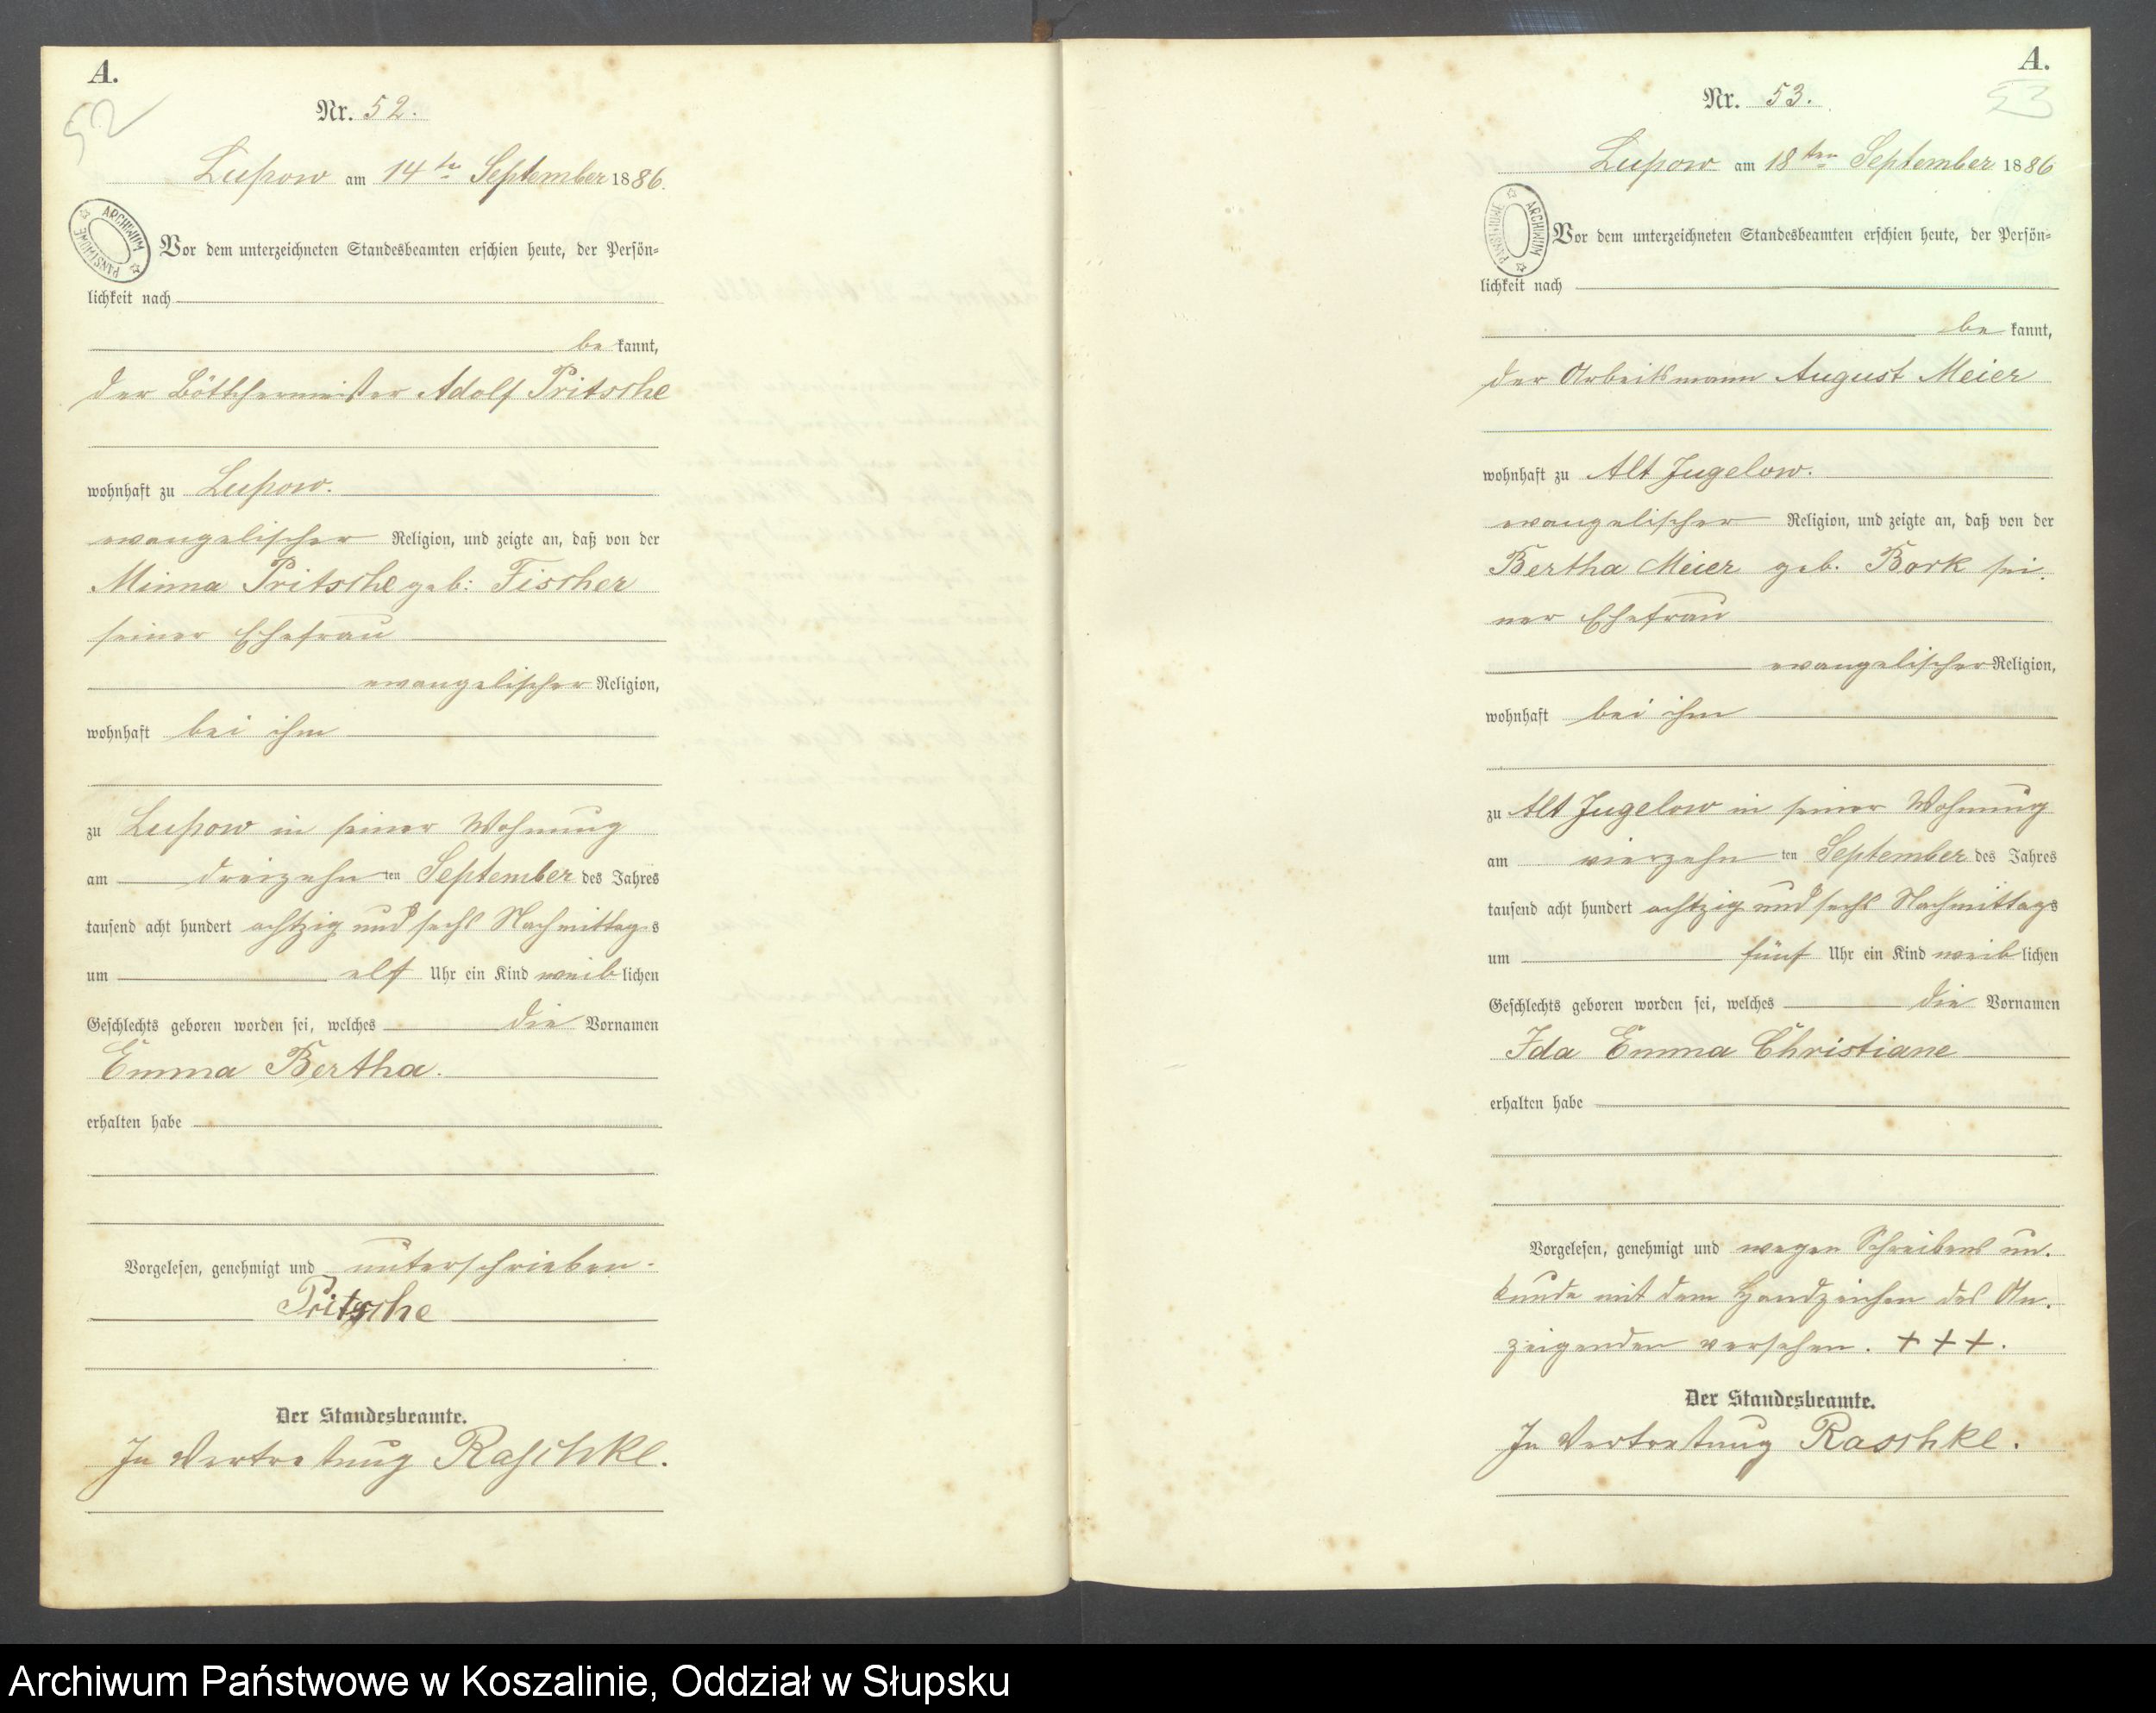 A.
52
Nr. 52.
Lupow am 14te September 1886.
ARCHIWUM PAŃSTWOWE
Vor dem unterzeichneten Standesbeamten erschien heute, der Persön-
lichkeit nach
be kannt,
der Böttchermeister Adolf Pritsche
wohnhaft zu Lupow.
evangelischer Religion, und zeigte an, daß von der
Minna Pritsche geb: Fischer
seiner Ehefrau
evangelischer Religion,
wohnhaft bei ihm
zu Lupow in seiner Wohnung
am dreizehn ten September des Jahres
tausend acht hundert achtzig und sechs Nachmittags
um elf Uhr ein Kind weiblichen
Geschlechts geboren worden sei, welches die Vornamen
Emma Bertha.
erhalten habe
Vorgelesen, genehmigt und unterschrieben.
Pritsche
Der Standesbeamte.
In Vertretung Raschke.
A.
53
Nr. 53.
Lupow am 18ten September 1886
ARCHIWUM PAŃSTWOWE
Vor dem unterzeichneten Standesbeamten erschien heute, der Persön-
lichkeit nach
be kannt,
der Arbeitsmann August Meier
wohnhaft zu Alt Jugelow.
evangelischer Religion, und zeigte an, daß von der
Bertha Meier geb. Bork sei-
ner Ehefrau
evangelischer Religion,
wohnhaft bei ihm
zu Alt Jugelow in seiner Wohnung
am vierzehn ten September des Jahres
tausend acht hundert achtzig und sechs Nachmittags
um fünf Uhr ein Kind weiblichen
Geschlechts geboren worden sei, welches die Vornamen
Ida Emma Christiane
erhalten habe
Vorgelesen, genehmigt und wegen Schreibens un-
kunde mit dem Handzeichen des An-
zeigenden versehen. + + +.
Der Standesbeamte.
In Vertretung Raschke.
Archiwum Państwowe w Koszalinie, Oddział w Słupsku